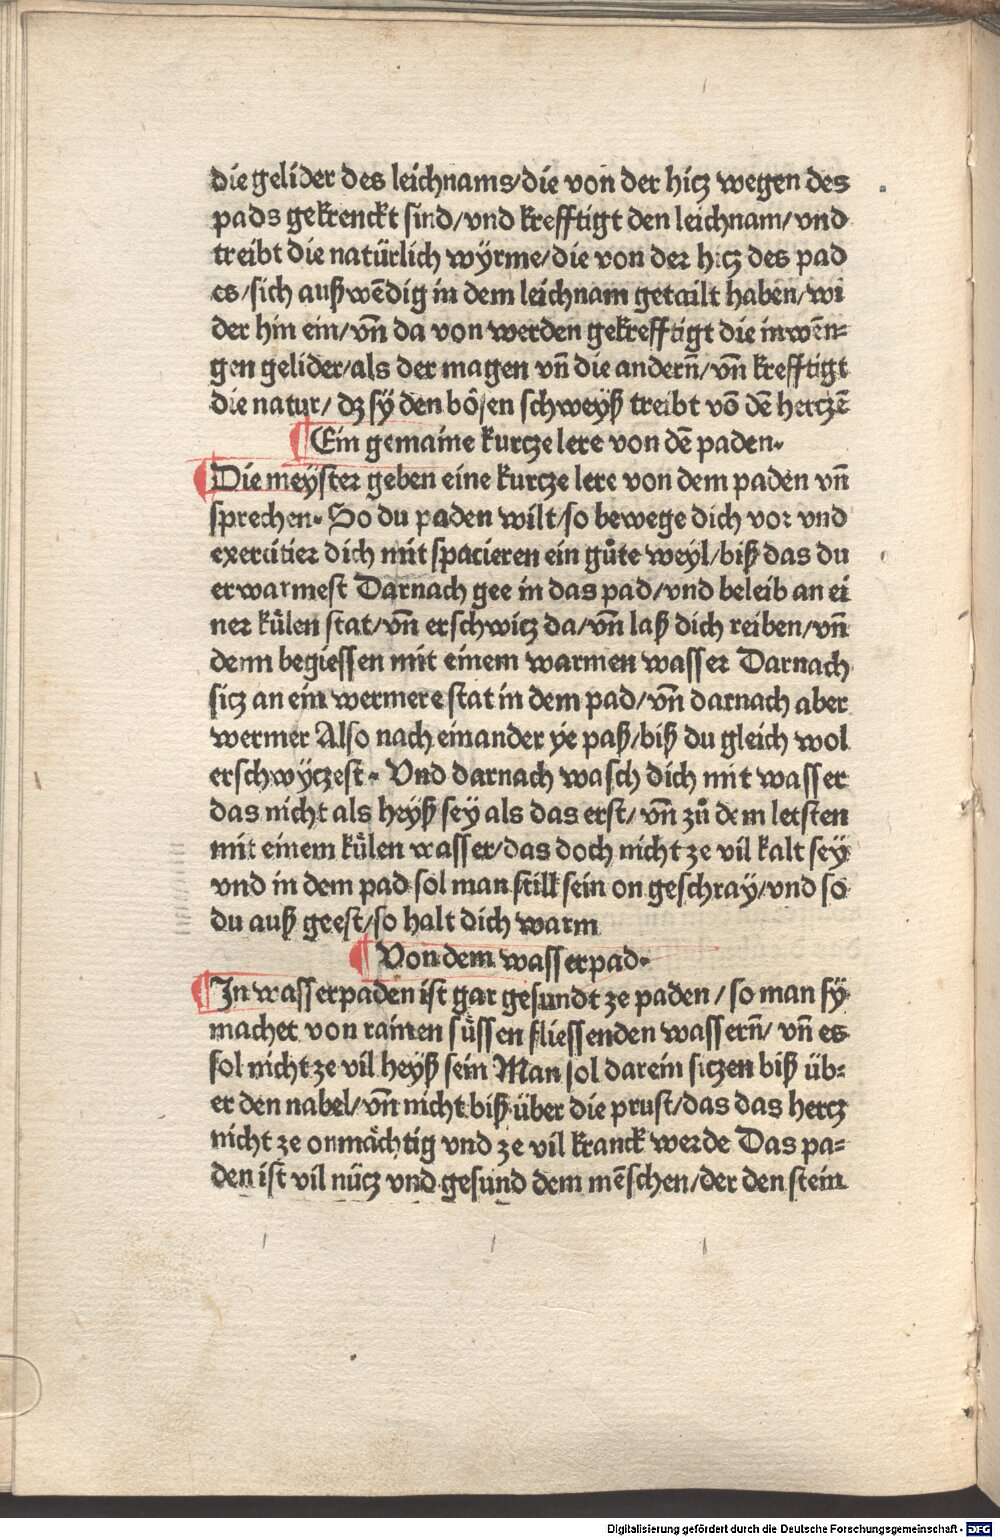 die gelider des leichnams/die von der hicz wegen des
pads gekrenckt sind/vnd krefftigt den leichnam/vnd
treibt die natürlich wÿrme/die von der hicz des pad
es/sich außwēdig in dem leichnam getailt haben/wi
der hin ein/vn̄ da von werden gekrefftigt die inwēn⸗
gen gelider/als der magen vn̄ die andern̄/vn̄ krefftigt
die natur/ dz sÿ den bôsen schweyß treibt vō dē herczē
Ein gemaine kurcze lere von dē paden.
Die meÿster geben eine kurcze lere von dem paden vn̄
sprechen. So du paden wilt/so bewege dich vor vnd
exercitier dich mit spacieren ein gůte weyl/biß das du
erwarmest Darnach gee in das pad/vnd beleib an ei
ner kůlen stat/vn̄ erschwicz da/vn̄ laß dich reiben/vn̄
denn begiessen mit einem warmen wasser Darnach
sicz an ein wermere stat in dem pad/vn̄ darnach aber
wermer Also nach einander ye paß/biß du gleich wol
erschwÿczest. Vnd darnach wasch dich mit wasser
das nicht als heyß seÿ als das erst/vn̄ zů dem letsten
mit einem kůlen wasser/das doch nicht ze vil kalt seÿ
vnd in dem pad sol man still sein on geschray/vnd so
du auß geest/so halt dich warm
Von dem wasserpad.
In wasserpaden ist gar gesundt ze paden/so man sÿ
machet von rainen sůssen fliessenden wassern̄/vn̄ es
sol nicht ze vil heyß sein Man sol darein siczen biß üb⸗
er den nabel/vn̄ nicht biß über die prust/das das hercz
nicht ze onmåchtig vnd ze vil kranck werde Das pa⸗
den ist vil nücz vnd gesund dem mēschen/der den stein
Digitalisierung gefördert durch die Deutsche Forschungsgemeinschaft - DFG